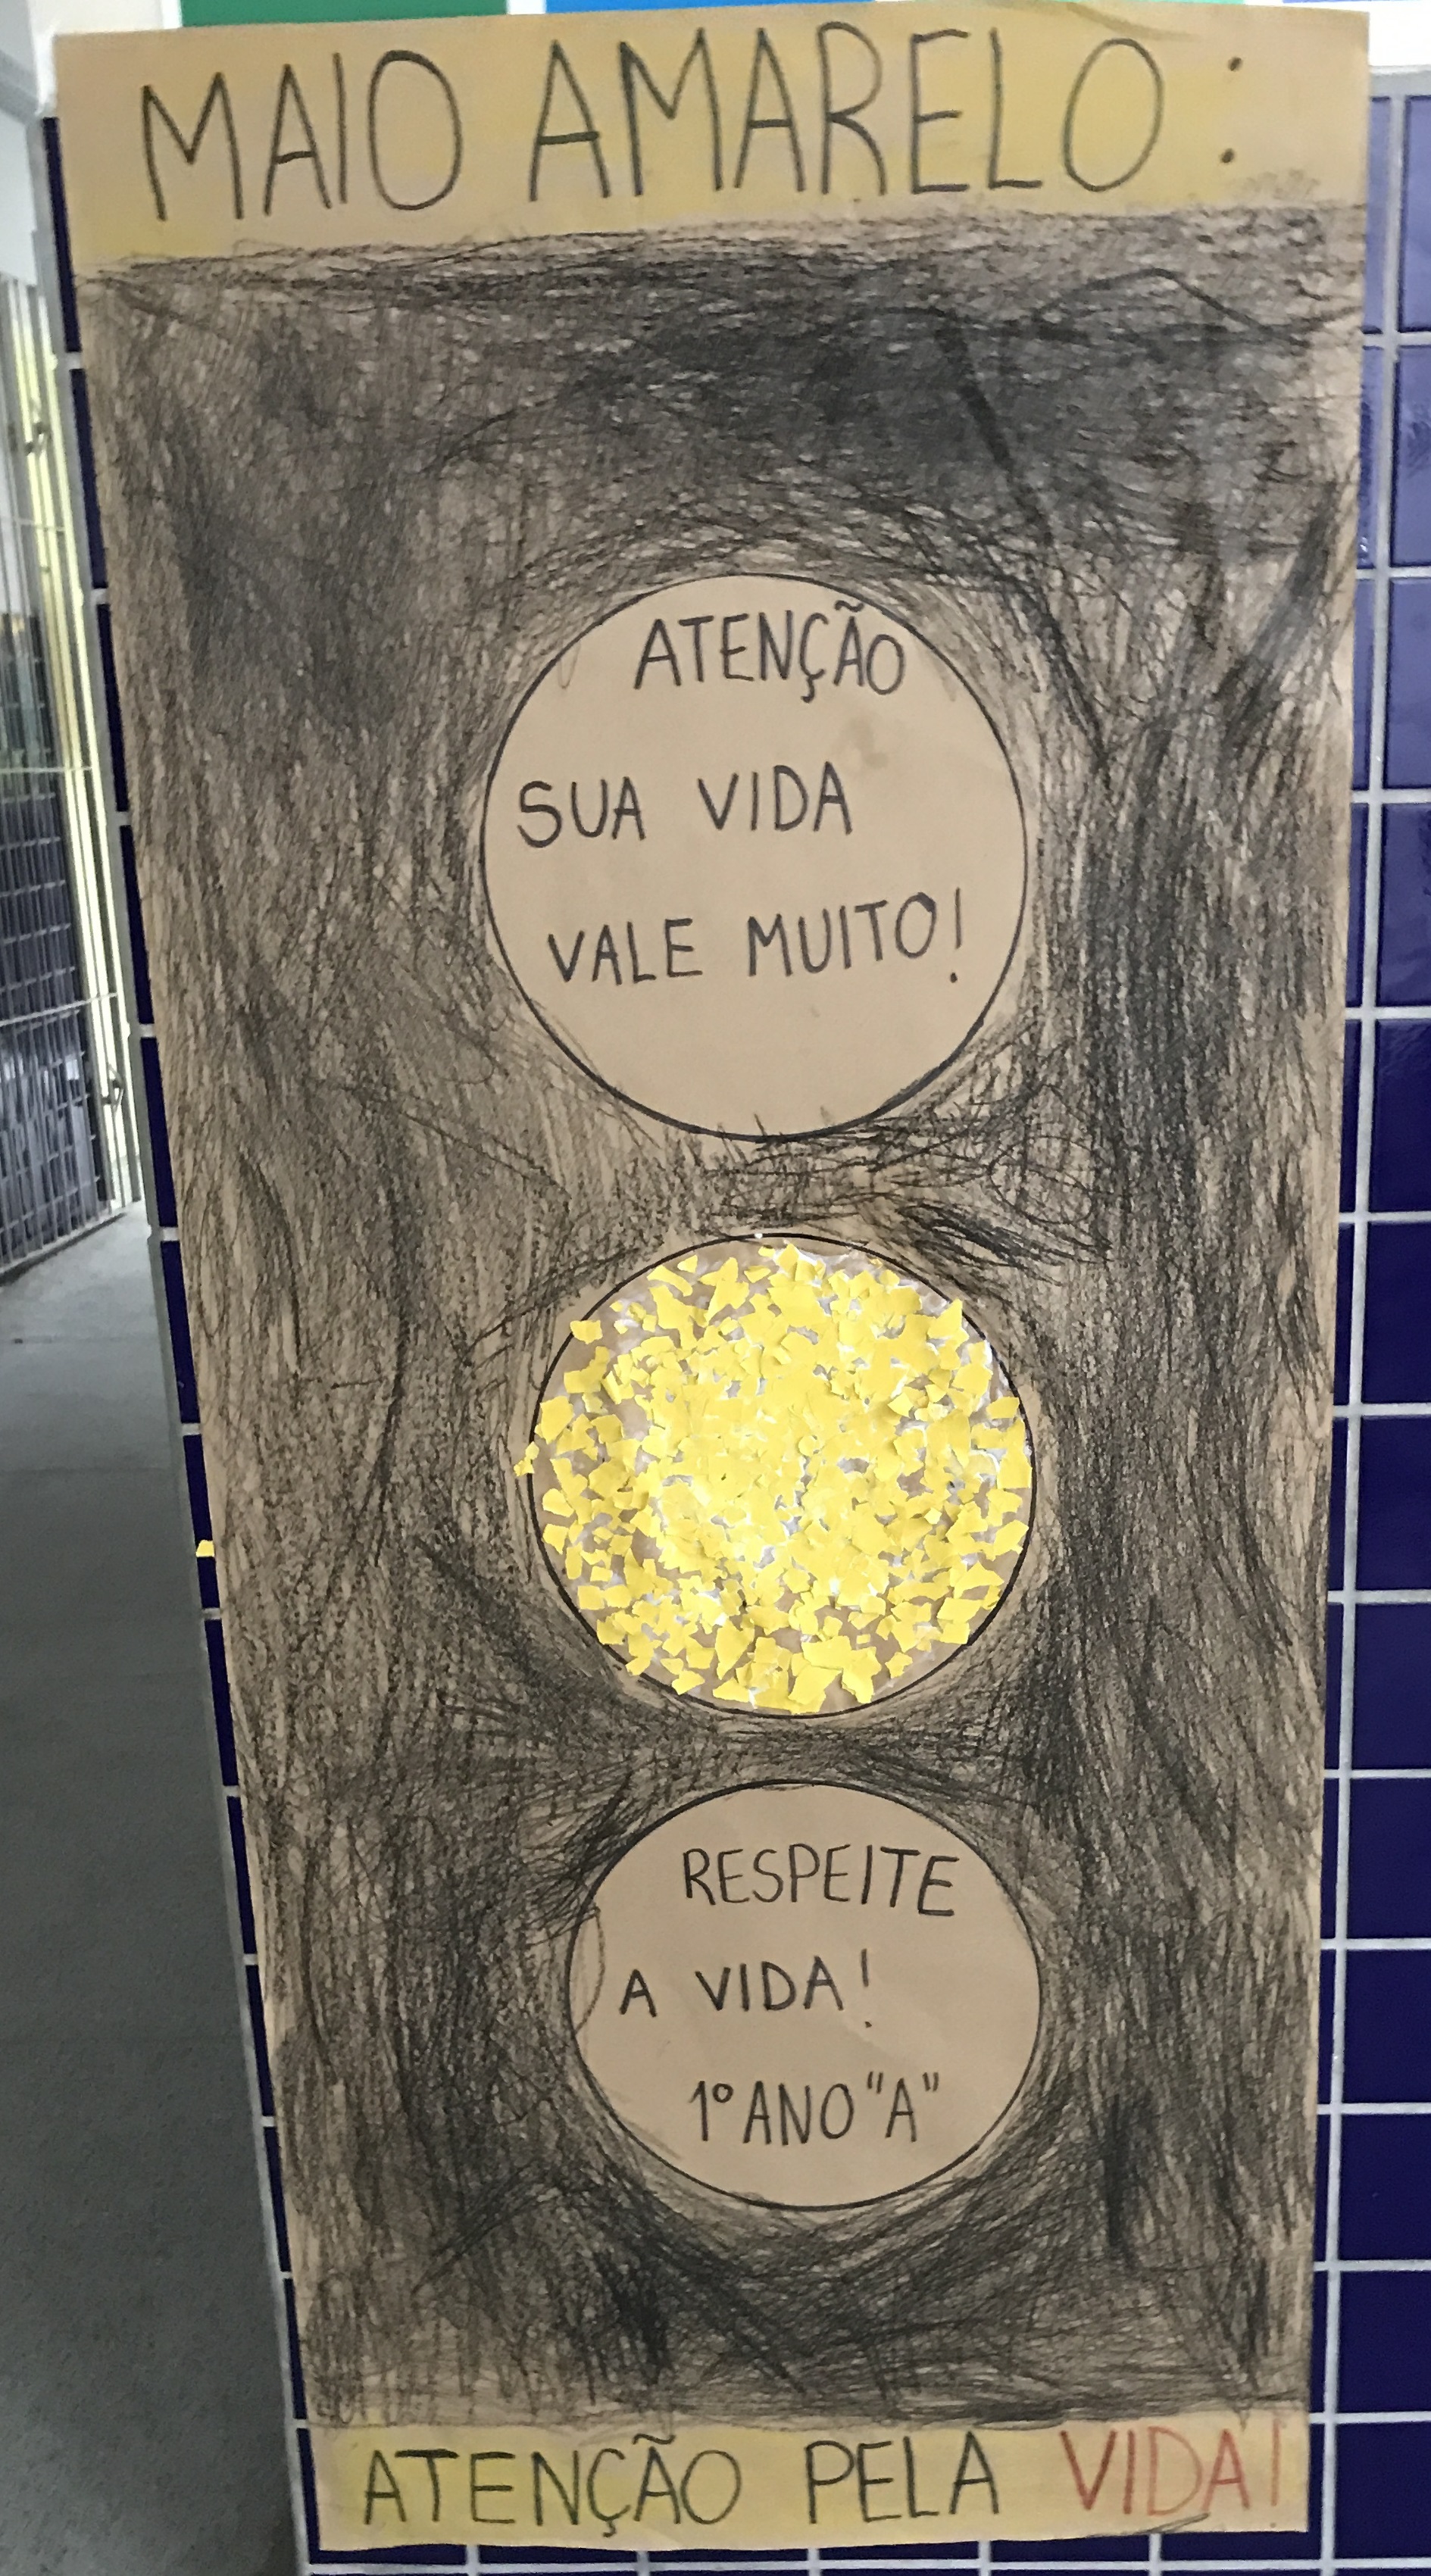 MAIO AMARELO:
ATENÇÃO
SUA VIDA
VALE MUITO!
RESPEITE
A VIDA!
1º ANO "A"
ATENÇÃO PELA VIDA!